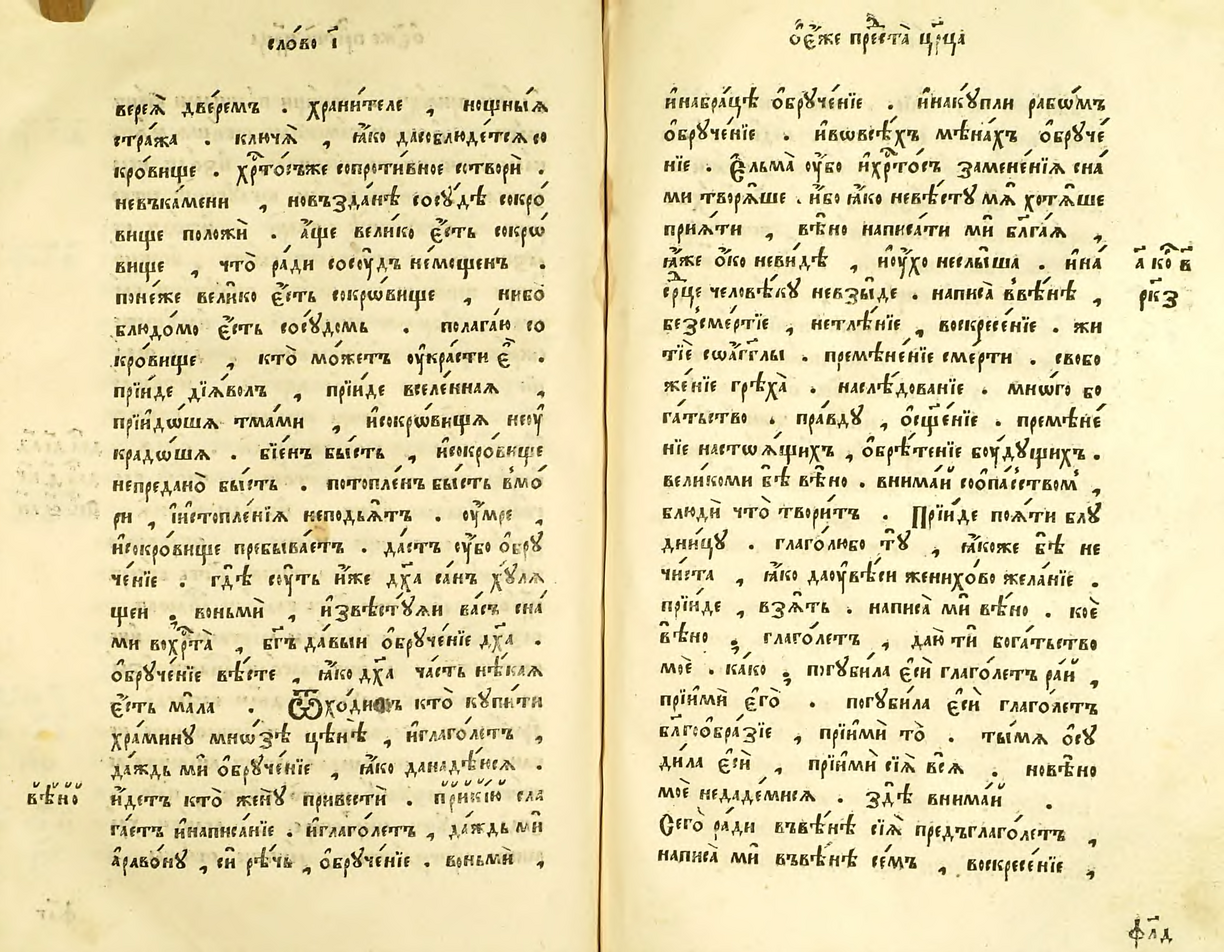 сло́во і҃
верея̀ две́ремъ . храни́теле , нощны́я
стра́жа . ключѧ̀ , ꙗ҆́ко дасоблюде́тсѧ со
кро́вище . хр҇то́съже сопроти́вное сотворѝ .
невъка́мени , новъзда́нѣ сосꙋ́дѣ сокро́
вище положѝ . а҆́ще велико є҆́сть сокрѡ́
вище , что̀ ра́ди сосоу́дъ не́мощенъ .
поне́же вели́ко є҆́сть сокро́вище , нибо̀
блюдо́мо є҆́сть сосꙋ́домь . полага́ю со
кро́вище , кто̀ мо́жетъ оу҆кра́сти є҆̀ .
прїи́де дїѧ́волъ , прїи́де вселе́ннаѧ ,
прїидѡ́шѧ тма́ми , и҆сокрѡ́вищѧ неоу҆
кра́дѡшѧ . бїе́нъ бы́сть , и҆сокро́вище
непредано̀ бы́сть . потопле́нъ бы́сть в̾мо́
ри , і҆истопле́нїѧ неподъѧ́тъ . оу҆́мре ,
и҆сокро́вище пребыва́етъ . да́стъ оу҆́бо ѡ҆брꙋ
че́нїе . гдѣ̀ сꙋ́ть и҆̀же дх҃а са́нъ хꙋ́лѧ
щеи . воньмѝ , и҆звѣ́стꙋѧи ва́съ сна́
ми вохр҇та̀ , бг҃ъ да́выи ѡ҆брꙋче́нїе дх҃а .
ѡ҆брꙋче́нїе вѣ́сте , ꙗ҆́ко дх҃а ча́сть нѣ́каѧ
є҆́сть ма́ла . Ѿходи́тъ кто̀ кꙋпи́ти
хра́минꙋ мнѡ́зѣ цѣ́нѣ , и҆глаго́летъ ,
да́ждь мѝ ѡ҆брꙋче́нїе , ꙗ҆́ко данадѣ́юсѧ .
вѣ́но
и҆́детъ кто̀ женꙋ̀ привестѝ . при́кїю сла
га́етъ и҆написа́нїе . и҆глаго́летъ , да́ждь мѝ
а҆раво́нꙋ , сѝ рѣ́чь , ѡ҆брꙋче́нїе . воньмѝ ,
ѻ҆є҆́же предста̀ цр҃ца
и҆набра́цѣ ѡ҆брꙋче́нїе . и҆накꙋ́пли рабѡ́мъ
ѡ҆брꙋче́нїе . и҆вовсѣ́хъ мѣ́нахъ ѡ҆брꙋче́
нїе . Є҆льма̀ оу҆́бо и҆хр҇то́съ замене́нїѧ сна́
ми творѧ́ше . и҆́бо ꙗ҆́ко невѣ́стꙋ мѧ̀ хотѧ́ше
прїѧ́ти , вѣ́но написа́ти мѝ бл҃га́ѧ ,
ꙗ҆́же ѻ҆́ко неви́дѣ , и҆оу҆́хо неслы́ша . и҆на̀
а҃ ко҇ в҃
ср҇це человѣ́кꙋ невзы́де . написа̀ в̾вѣ́нѣ ,
рк҃з
безсме́ртїе , нетлѣ́нїе , воскресе́нїе . жи
тїѐ соа҆́гг҃лы . премѣне́нїе сме́рти . свобо
жде́нїе грѣха̀ . наслѣ́дованїе . мно́го бо
га́тьство . пра́вдꙋ , ѡ҆сщ҃е́нїе . премѣне́
нїе настоѧ́щихъ , ѡ҆брѣ́тенїе боу́дꙋщихъ .
велико́ми бѣ̀ вѣ́но . внима́и соопа́сствомъ ,
блюдѝ что̀ твори́тъ . Прїи́де поѧ́ти блꙋ
дни́цꙋ . глаго́любо тꙋ̀ , ꙗ҆́коже бѣ̀ не
чи́ста , ꙗ҆́ко даоу҆вѣ́си женихо́во жела́нїе .
прїи́де , взѧ́тъ . написа̀ мѝ вѣ́но . ко́е
вѣ́но , глаго́летъ , даю̀ тѝ бога́тьство
моѐ . ка́ко , погꙋби́ла є҆сѝ глаго́летъ ра́и ,
прїимѝ є҆го̀ . погꙋби́ла є҆сѝ глаго́летъ
бл҃гоо́бразїе , прїимѝ то̀ . ты́мѧ ѡ҆сꙋ
ди́ла є҆сѝ , прїимѝ сїѧ̀ всѧ̀ . новѣ́но
моѐ недаде́мисѧ . здѣ̀ внима́и .
Сего̀ ра́ди въвѣ́нѣ сїѧ̀ предъглаго́летъ ,
написа̀ мѝ въвѣ́нѣ се́мъ , воскресе́нїе ,
ф҃лд